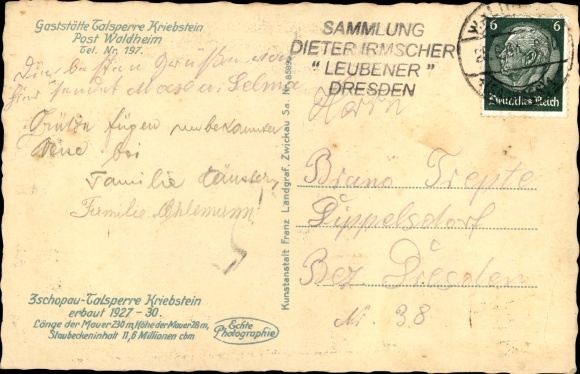 Gaststätte Talsperre Kriebstein
Post Waldheim
Tel. Nr. 197.
Die besten Grüße von
hier sendet Max u. Selma
Grüße fügen unbekannter
Weise bei
Familie
Familie Ehlemann
Zschopau-Talsperre Kriebstein
erbaut 1927-30.
Länge der Mauer 230 m, Höhe der Mauer 28 m,
Staubeckeninhalt 11,6 Millionen cbm
Echte
Photographie
Kunstanstalt Franz Landgraf, Zwickau Sa.
SAMMLUNG
DIETER IRMSCHER
"LEUBENER"
DRESDEN
6 6
Deutsches Reich
Herrn
Bruno Trepte
Dippelsdorf
Bez Dresden
Nr. 38